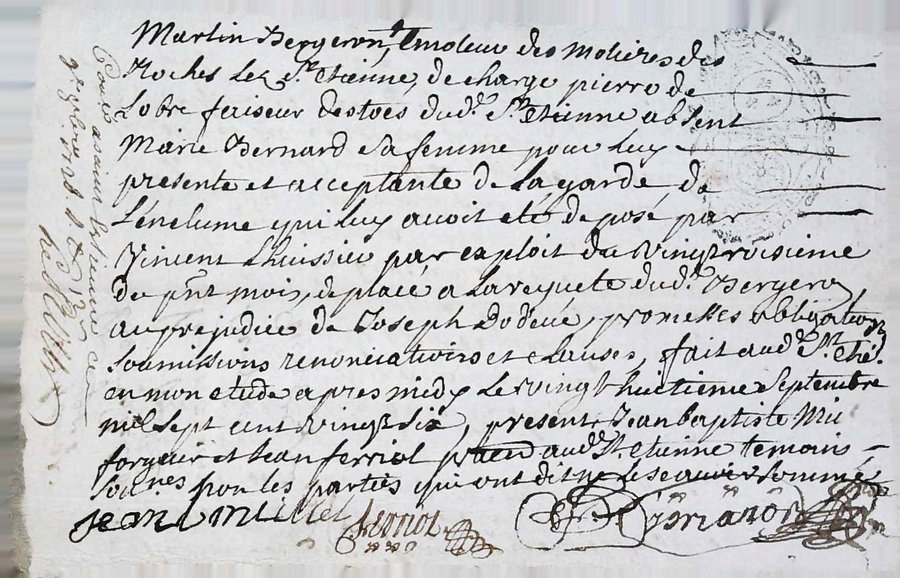 Martin Bergeron, Emoleur des Molières des
Roches Lez St. Etienne, decharge pierre de
Lobre faiseur destocs dud. St. Etienne absent
Marie Bernard sa femme pour luy
presente et acceptante de La garde de
Lenclume qui luy avoit eté deposé par
Vincent Lhuissier par exploit du vingtroisieme
du pnt mois, deplacé a La requete dud. Bergeron
au prejudice de Joseph Bodeué, promesses obligations
soumissions renonciations et clauses, fait aud. St. Etie.
en mon etude apres midy Le vingt huitieme Septembre
mil sept cent vingt Six, present Jean baptiste Mil
forgeur et Jean ferriol dud. St. etienne temoins
Sou.nes non les parties qui ont dit ne le scavoir sommé
jean Millet ferriol
a St. Etienne ce